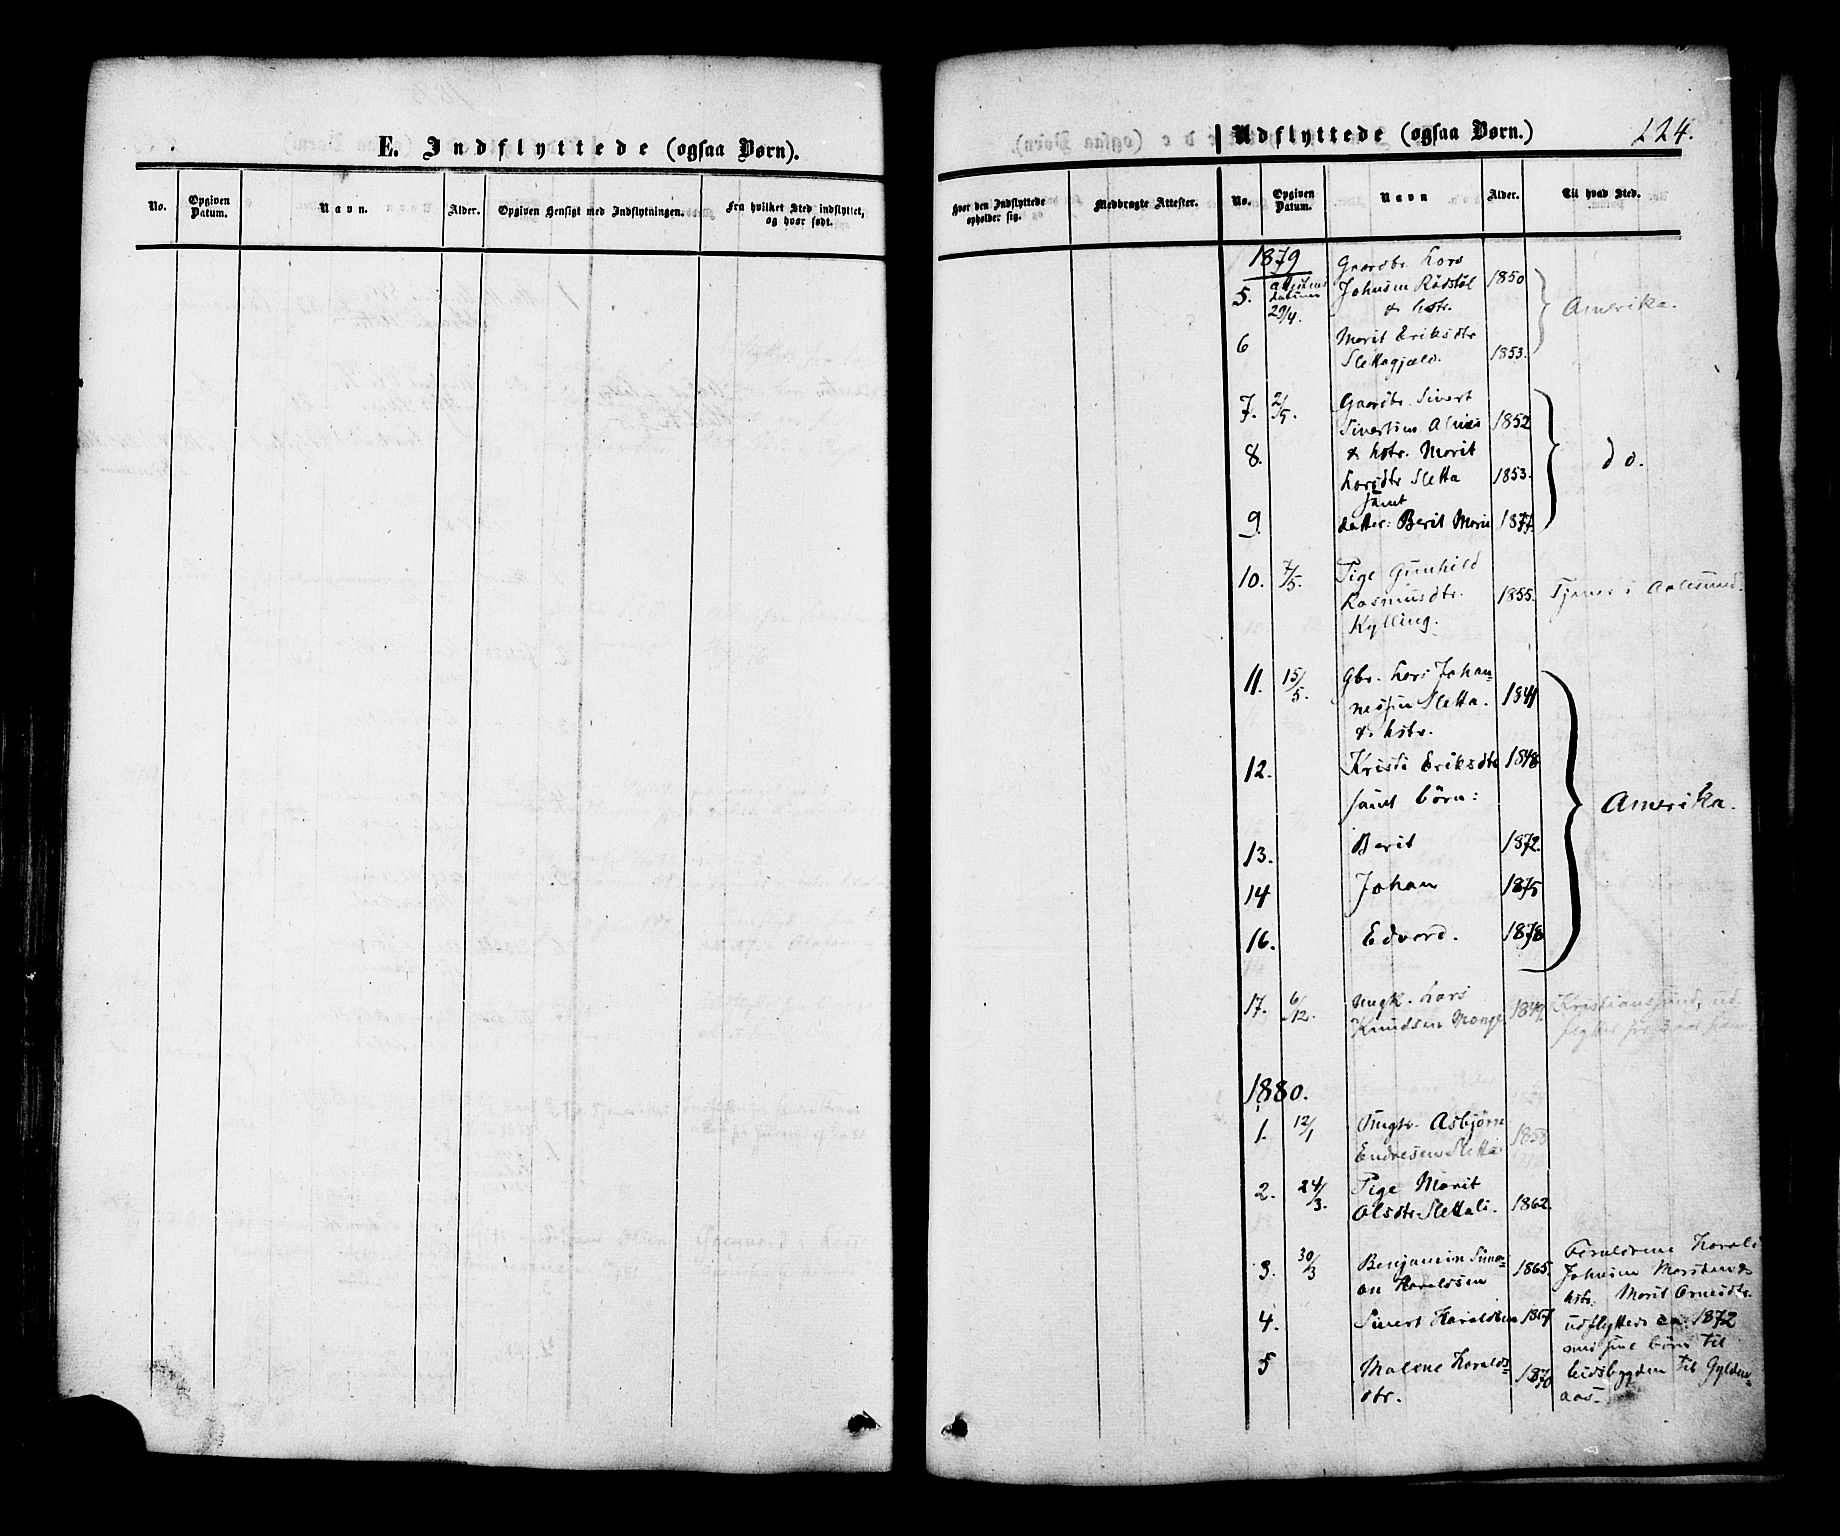 E. Indflyttede (ogsaa Børn).
No.
Opgiven Datum.
Navn.
Alder.
Opgiven Hensigt med Indflytningen.
Fra hvilket Sted indflyttet, og hvor født.
Udflyttede (ogsaa Børn.)
224.
Hvor den Indflyttede opholder sig.
Medbragte Attester.
No.
Opgiven Datum.
Navn
Alder.
Til hvad Sted.
1879
5. 29/4. Gaardbr. Lars
Johnsen Rødstøl 1850
& hstr.
Amerika.
6 Marit Eriksdtr
Slettagjæld. 1853.
7. 2/5. Gaardbr. Sivert
Sivertsen Alnes 1852
8. & hstr. Marit
Larsdtr Sletta 1853.
samt
9 datter: Berit Marie 1877.
do.
10. 7/5. Pige Gunhild
Rasmusdtr. 1855. Tjener i Aalesund.
Kylling.
11. 15/5. Gbr. Lars Johan-
nessen Sletta. 1841
& hstr.
12. Kristi Eriksdtr 1848
samt börn:
Amerika.
13. Berit 1872.
14 Johan 1875
16. Edvard. 1878
17. 6/12. Ungk. Lars
Knudsen Monge 1849. Kristianssund, ud-
1880.
1. 12/1 Ungkr. Asbjørn
Endresen Sletta 1858
2. 24/3. Pige Marit
Olsdtr. Slettali. 1862.
3. 30/3 Benjamin Sime-
on Haraldsen 1865.
4. Sivert Haraldsen 1867
5 Malene Haralds-
dtr. 1870
Forældrene Harald
Johnsen Marstein &
hstr. Marit Arnesdtr.
udflyttede ca. 1872
med sine börn til
bidsbygden til Gylden-
aas.